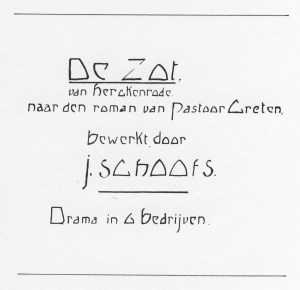 De Zot.
van herckenrode.
naar den roman van Pastoor Greten.
bewerkt door
j. schoofs.
Drama in 6 bedrijven.